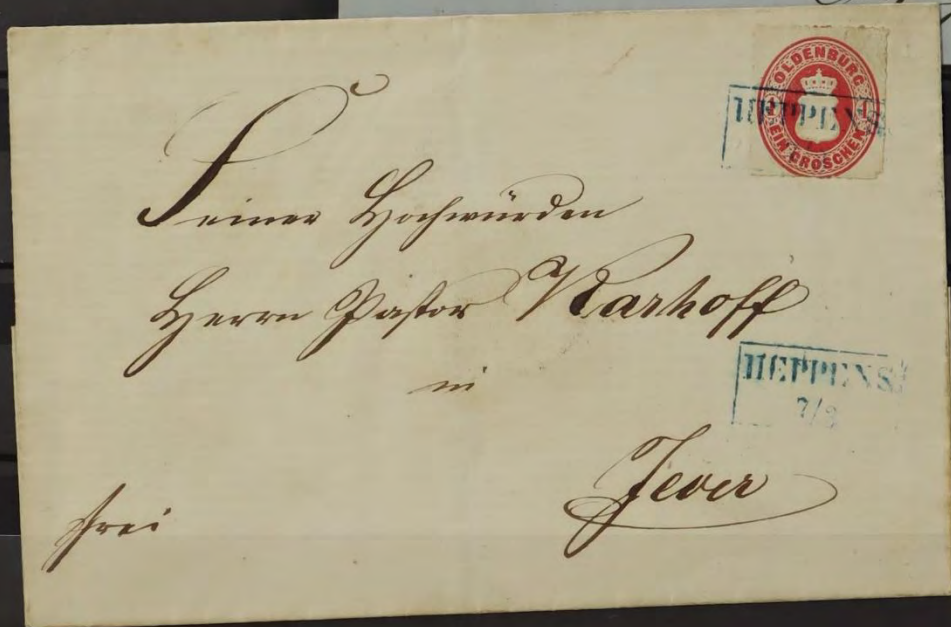 OLDENBURG
1 1
EIN GROSCHEN
HEPPENS
Seiner Hochwürden
Herrn Pastor
in
HEPPENS
7/3
Jever
frei